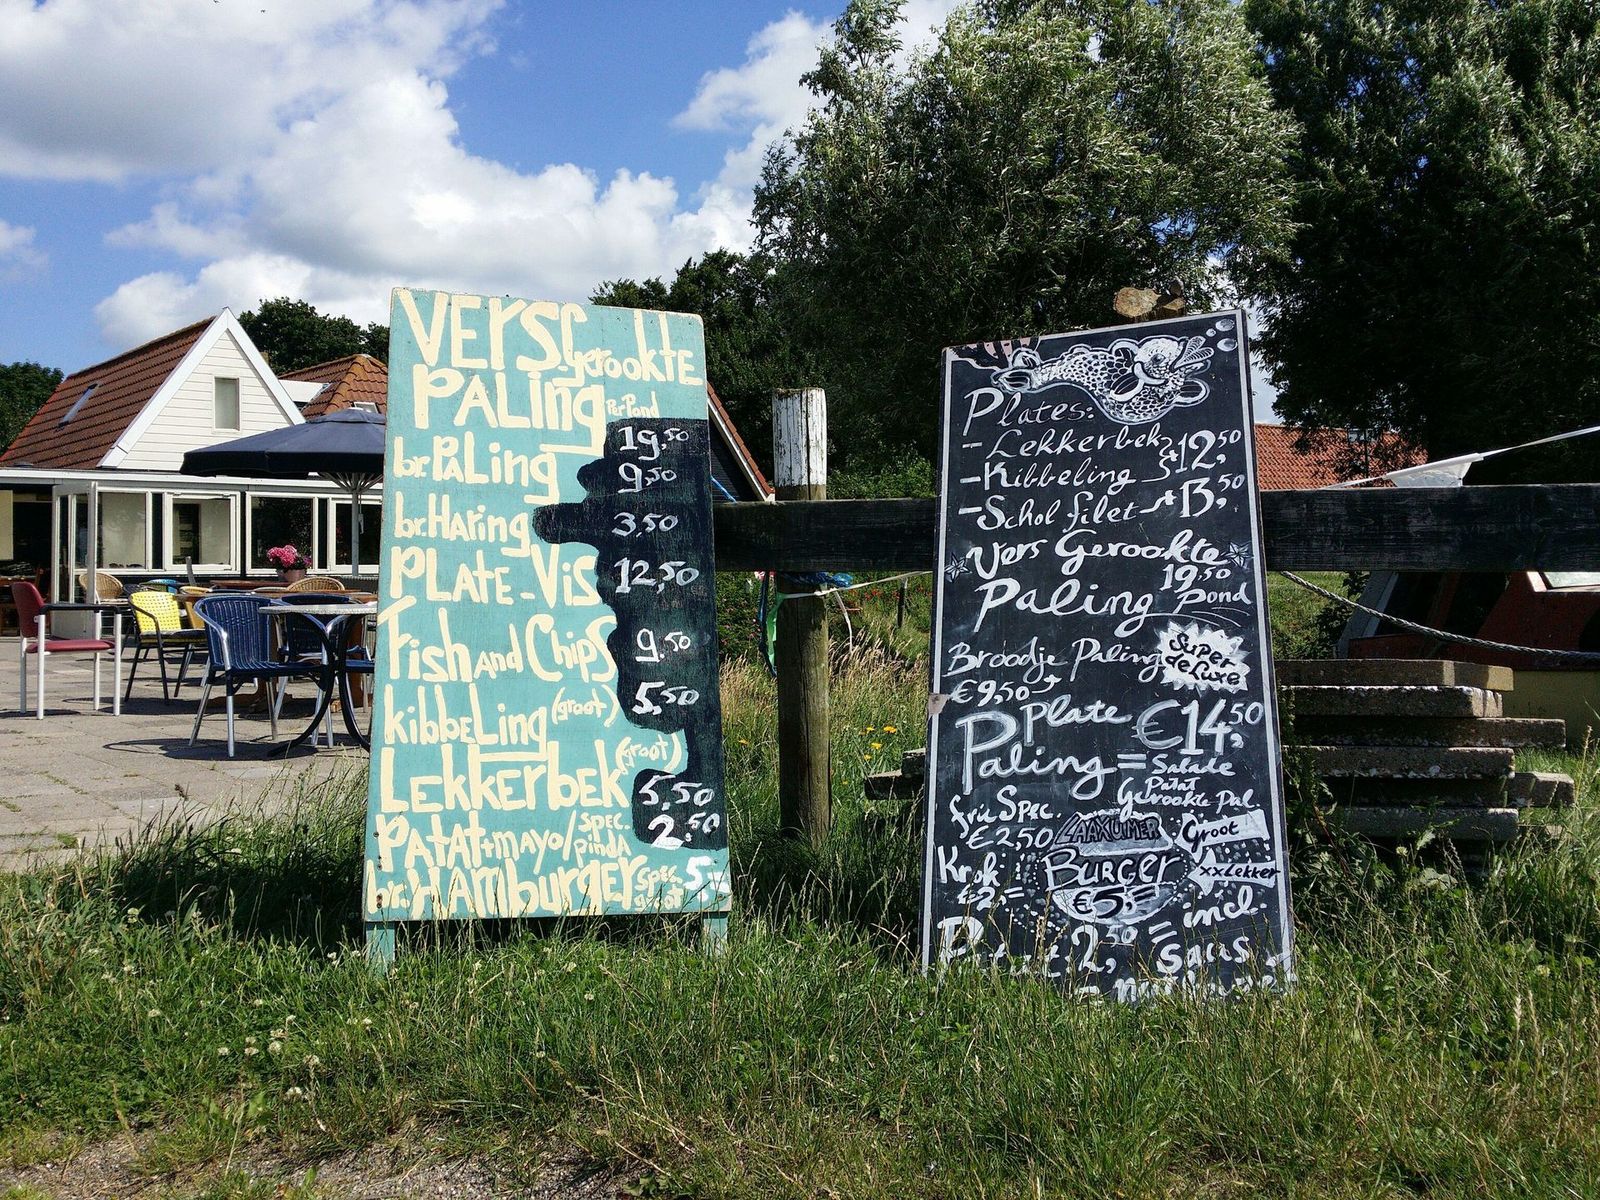 VERS
gerookte
PALing Per Pond
19,50
br. PALing 9,50
br. HAring 3,50
PLATE-Vis 12,50
Fish And Chips 9,50
kibbeLing (groot) 5,50
LEKKErbEK (groot) 5,50
PATAT+mayo/ spec. pinda 2,50
br. HAmburger spec. groot 5,=
Plates:
- Lekkerbek
- Kibbeling 12,50
- Schol filet 13,50
Vers Gerookte
Paling 19,50 Pond
Broodje Paling Super de Luxe
€9,50
Plate €14,50
Paling = Salade
Patat
Gerookte Pal.
fri Spec.
€2,50
LAAXUMER
BURGER
€5,=
Groot
xxLekker
Krok
€2,=
Patat 2,50 = incl.
saus